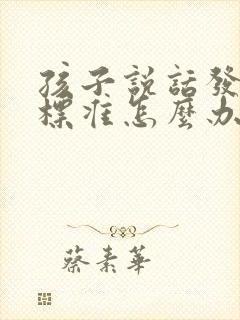 孩子説話發
標准怎麽办
蔡素華